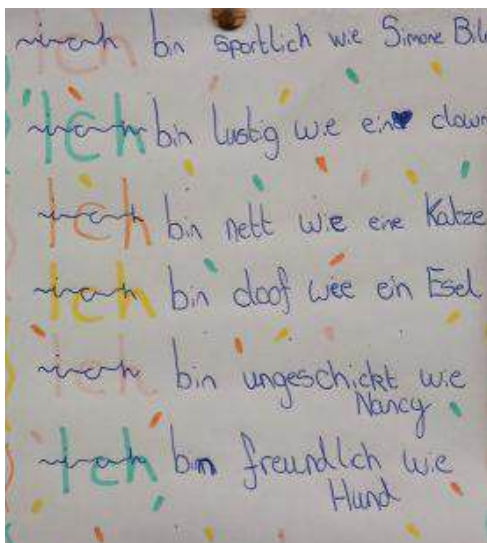 Ich bin sportlich wie Simone Bil
Ich bin lustig wie ein clown
Ich bin nett wie eine Katze
Ich bin doof wee ein Esel
Ich bin ungeschickt wie
Nancy
Ich bin freundlch wie
Hund